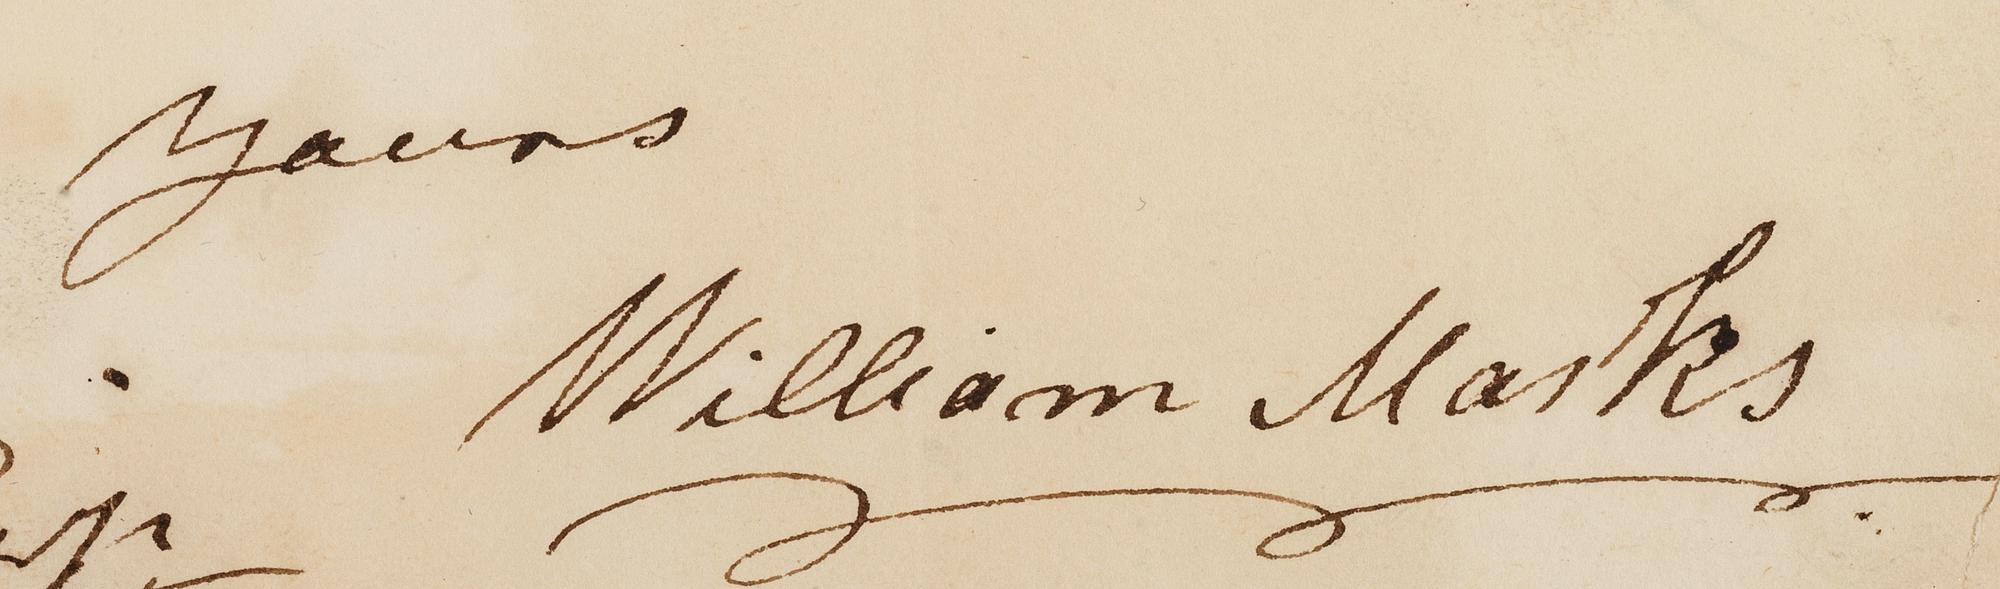 Yours
William Marks